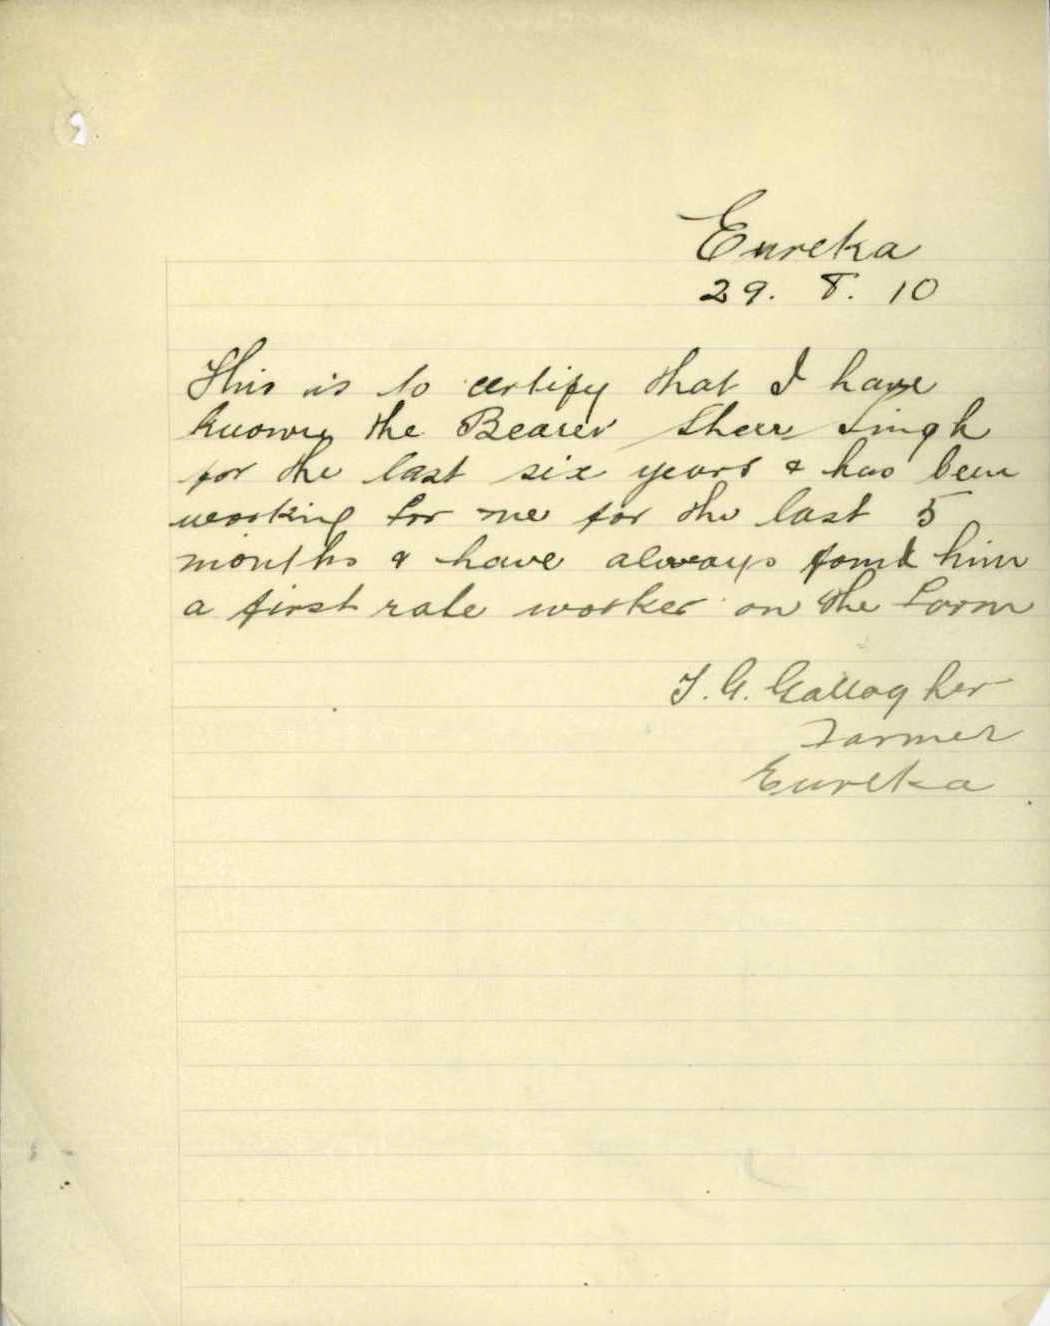 Eureka
29. 8. 10
This is to certify that I have
known the Bearer Sheer Singh
for the last six years & has been
working for me for the last 5
months & have always found him
a first rate worker on the Farm
T. G. Gallagher
Farmer
Eureka